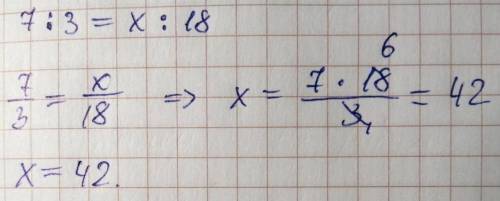 7 : 3 = x : 18
6
7/3 = x/18 => x = 7 · 18/3 1 = 42
x = 42.